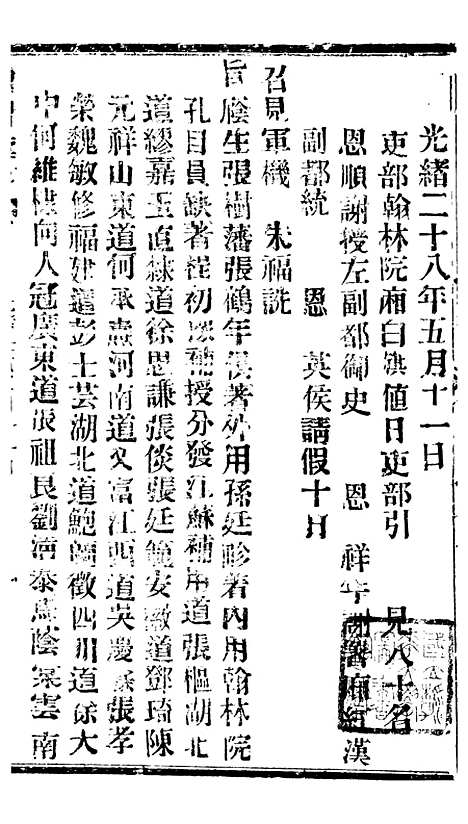 光緒二十八年五月十一日
吏部翰林院廂白旗值日吏部引 見八十名
恩順謝授左副都御史 恩 祥年謝署廂紅漢
副都統 恩 英侯請假十日
召見軍機 朱福詵
旨廕生張樹藩張鶴年俱著外用孫延昣著內用翰林院
孔目員缺著崔初補授分發江蘇補用道張樞湖北
道繆嘉玉直隸道徐恩謙張倓張廷鏡安徽道鄧琦陳
元祥山東道何承燾河南道文富江西道吳慶燾張孝
榮魏敏修福建道彭士芸湖北道鮑徵四川道徐大
中何維棣向人冠廣東道張祖良劉濤泰盧蔭寀雲南